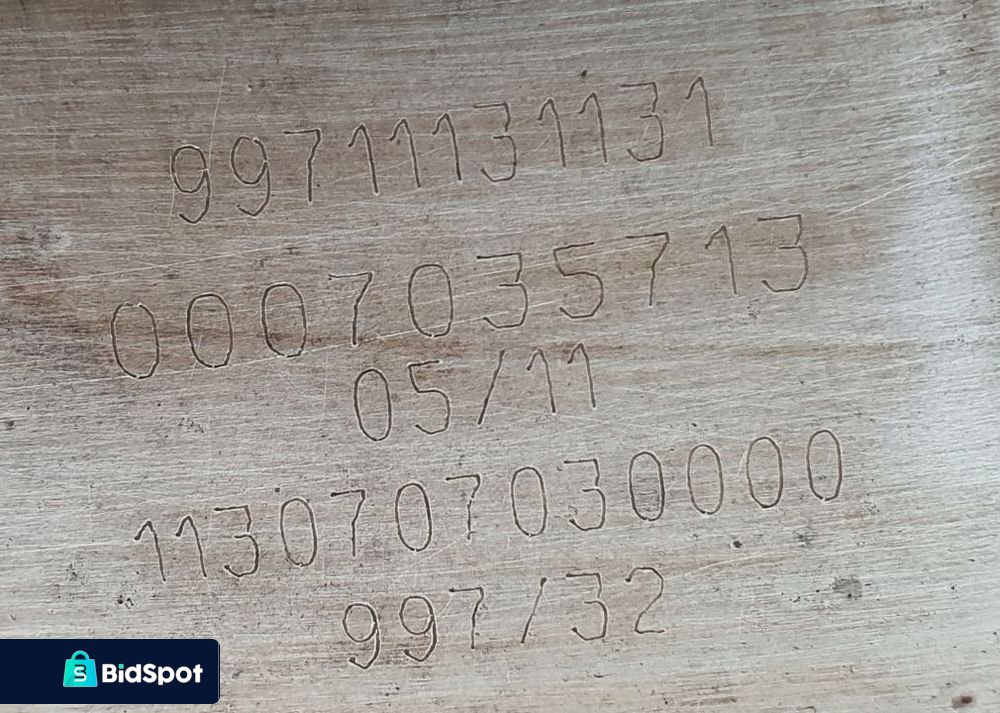 99711131131
0007035713
05/11
1130707030000
997/32
BidSpot